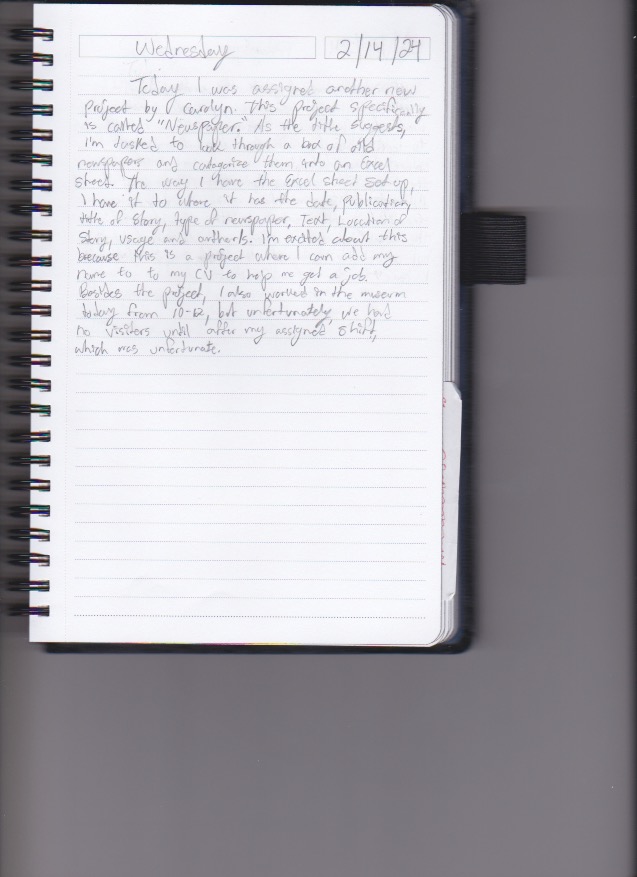 Wednesday 2/14/24
Today I was assigned another new
project by Carolyn. This project specifically
is called "Newspaper." As the title suggests,
I'm tasked to look through a box of old
newspapers and catagorize them into an Excel
sheet. The way I have the Excel sheet set up,
I have it to where it has the date, publication,
title of story, type of newspaper, Text, Location of
Story, usage and authors. I'm excited about this
because this is a project where I can add my
name to to my CV to help me get a job.
Besides the project, I also worked in the museum
today from 10-12, but unfortunately, we had
no visitors until after my assigned shift,
which was unfortunate.